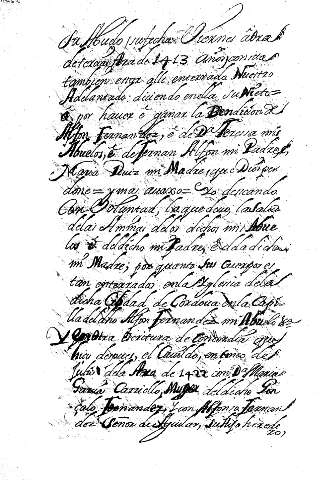 su Abuelo, su fecha Viernes
de la Era de 1413 años
tambien en que, enterrado Nuestro
Adelantado; diciendo en ella, su
a, por hauer e ganar la Bendicion de
Alfon Fernandez, e de Da. Teresa mis
Abuelos, e de Fernan Alfon mi Padre, e
Maria Ruiz mi Madre, que Dios per
done = y mas auaxo = Yo deseando
Con Voluntad,
de las Animas de los dichos mis Abue
los e del dicho mi Padre, e de la dicha
mi Madre, por quanto sus Cuerpos es
tan enterrados, en la Yglesia de la
dicha Ciudad de Cordova, en la Capi
lla del dho Alfon Fernandez mi Abuelo &c
Y en otra Escritura de Concordia que
hizo de nuez, el Cavildo, en
Julio de la Era de 1422 con Da. Maria
Garcia Carrillo, Muger del dicho Gon
zalo Fernandez, y con Alfonso Fernan
dez Señor de Aguilar, su hijo herede
ro,